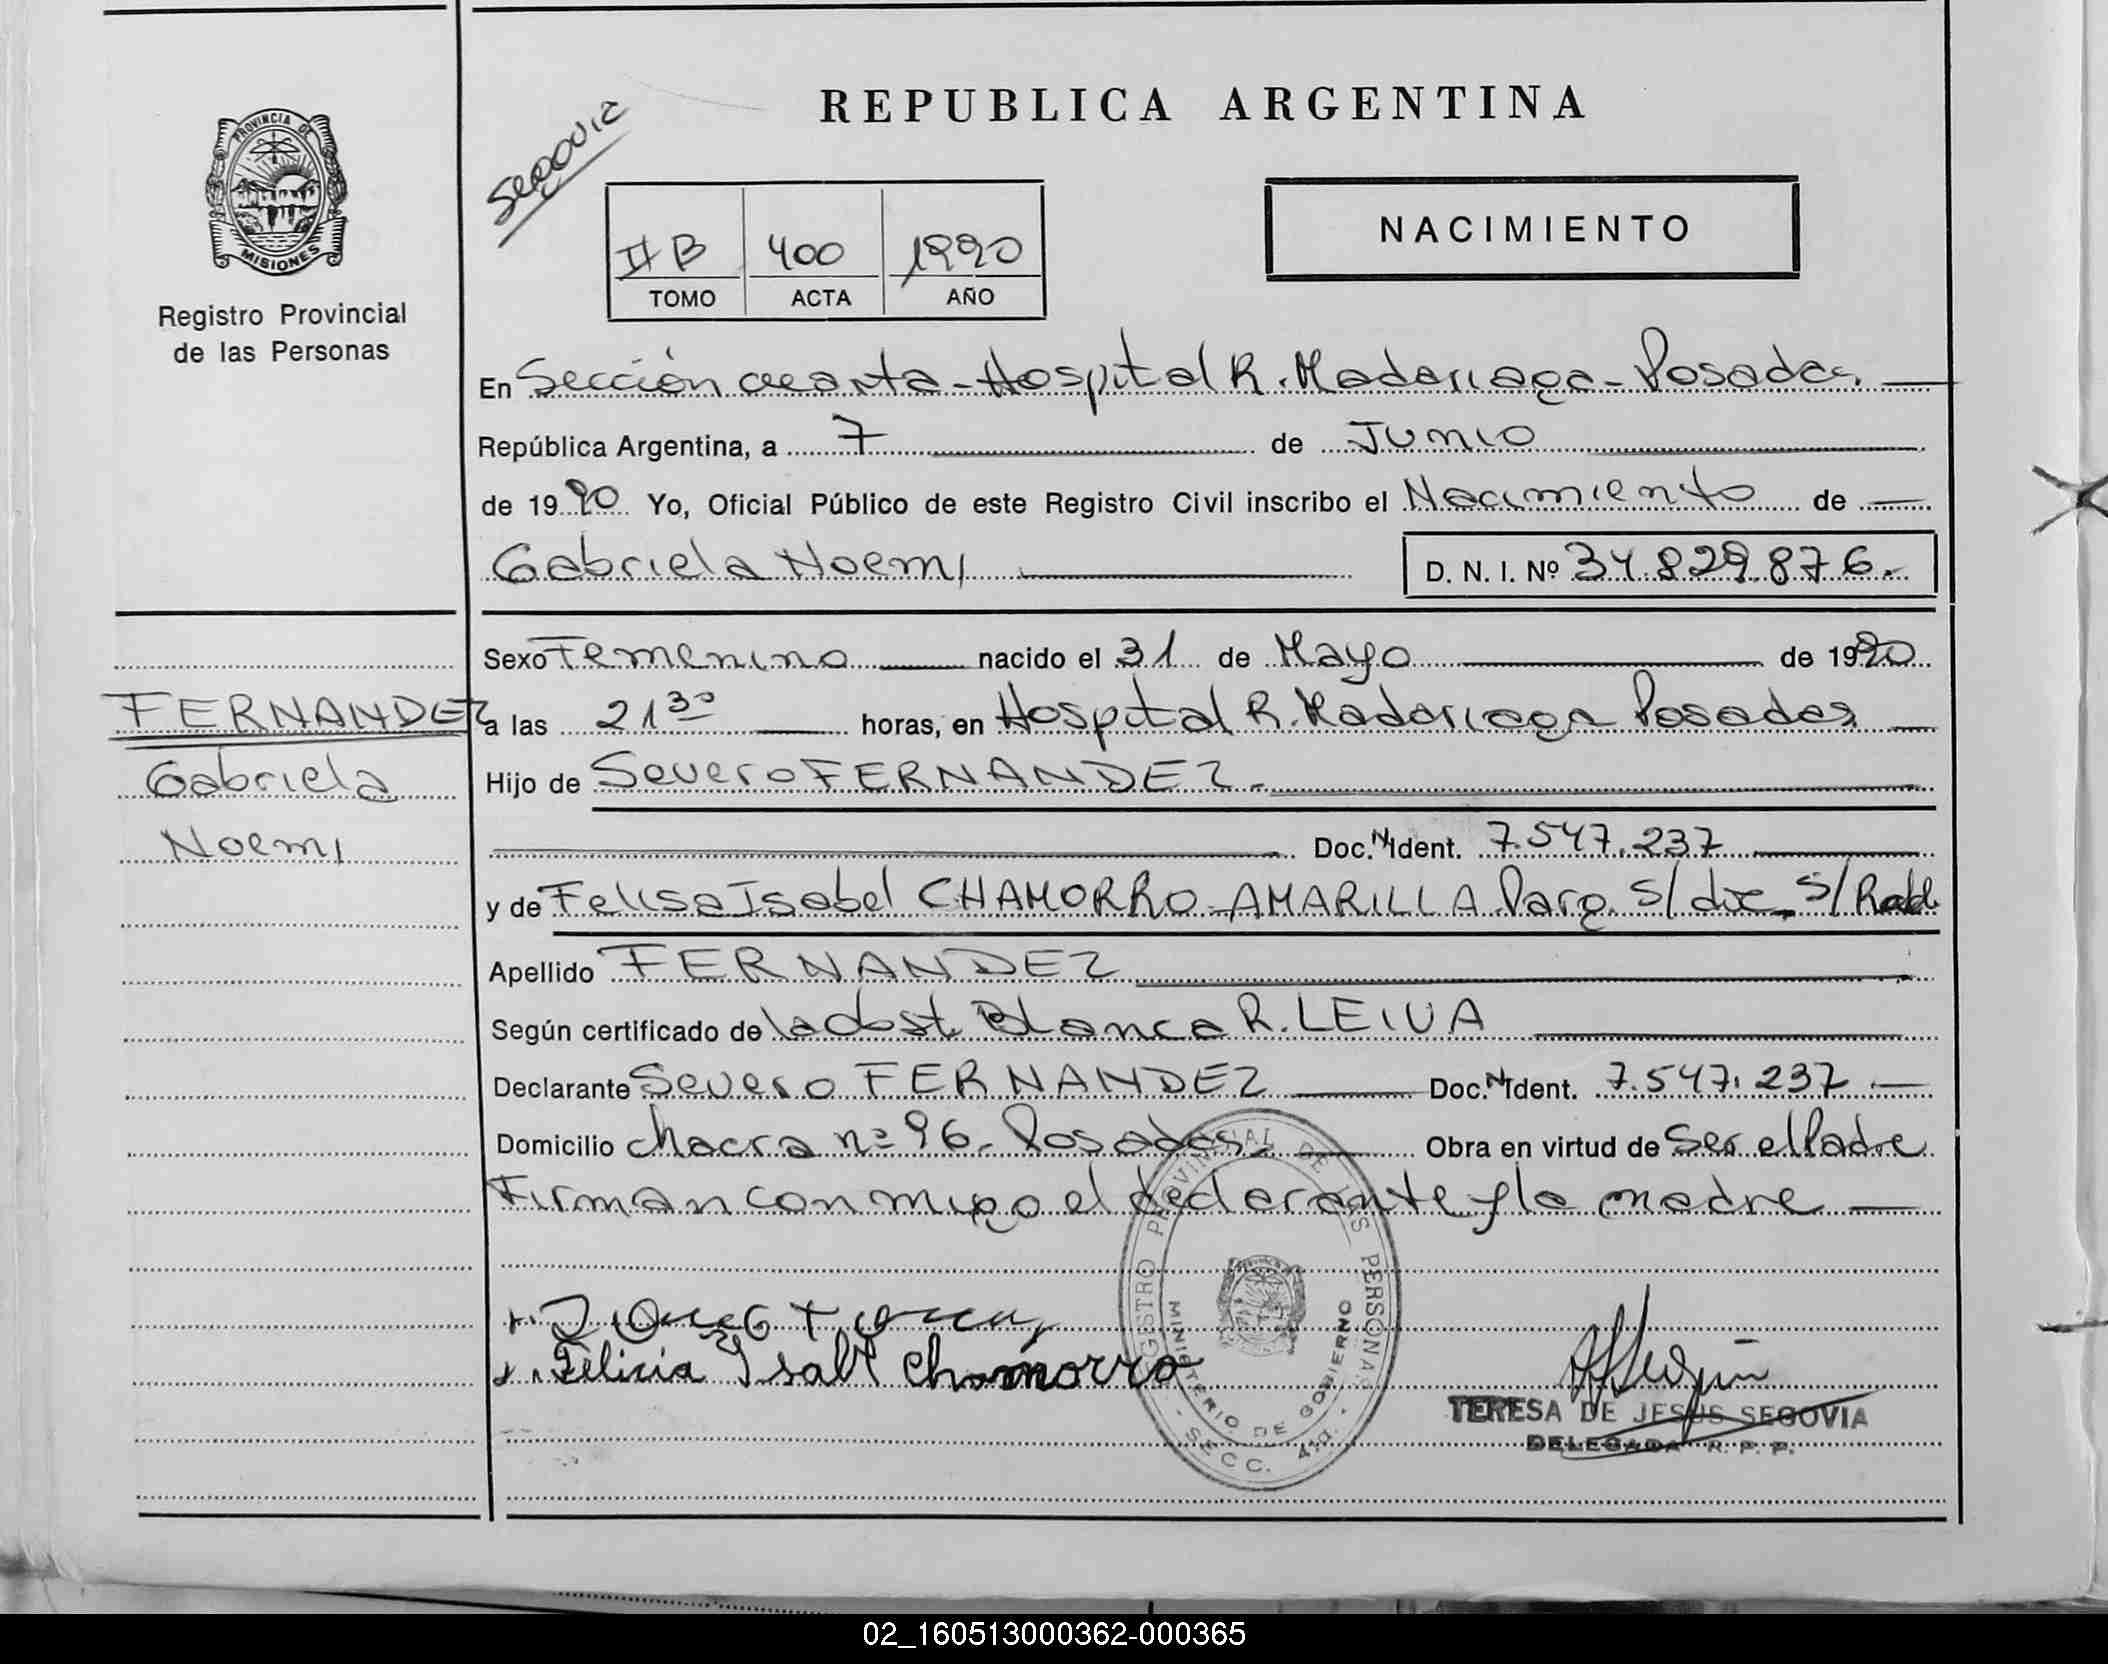 PROVINCIA DE
MISIONES
Registro Provincial
de las Personas
Segovia
REPUBLICA ARGENTINA
NACIMIENTO
II B 400 1990
TOMO ACTA AÑO
En Sección cuarta - Hospital R. Madariaga - Posadas.
República Argentina, a 7 de Junio
de 1990 Yo, Oficial Público de este Registro Civil inscribo el Nacimiento de
Gabriela Noemi D. N. I. Nº 34.829.876.-
Sexo Femenino nacido el 31 de Mayo de 1990
FERNANDEZ
Gabriela
Noemi
a las 21³⁰ horas, en Hospital R. Madariaga Posadas
Hijo de Severo FERNANDEZ.
Doc. N Ident. 7.547.237
y de Felisa Isabel CHAMORRO - AMARILLA Parg. s/ doc. s/ Rad.
Apellido FERNANDEZ
Según certificado de la obst. Blanca R. LEIVA
Declarante Severo FERNANDEZ Doc. N Ident. 7.547.237
Domicilio chacra nº 96 - Posadas Obra en virtud de Ser el Padre
Firman conmigo el declarante y la madre
Felicia Ysabl Chamorro
REGISTRO PROVINCIAL DE LAS PERSONAS
MINISTERIO DE GOBIERNO
- SECC. 4ta. -
TERESA DE JESUS SEGOVIA
DELEGADA R. P. P.
02_160513000362-000365